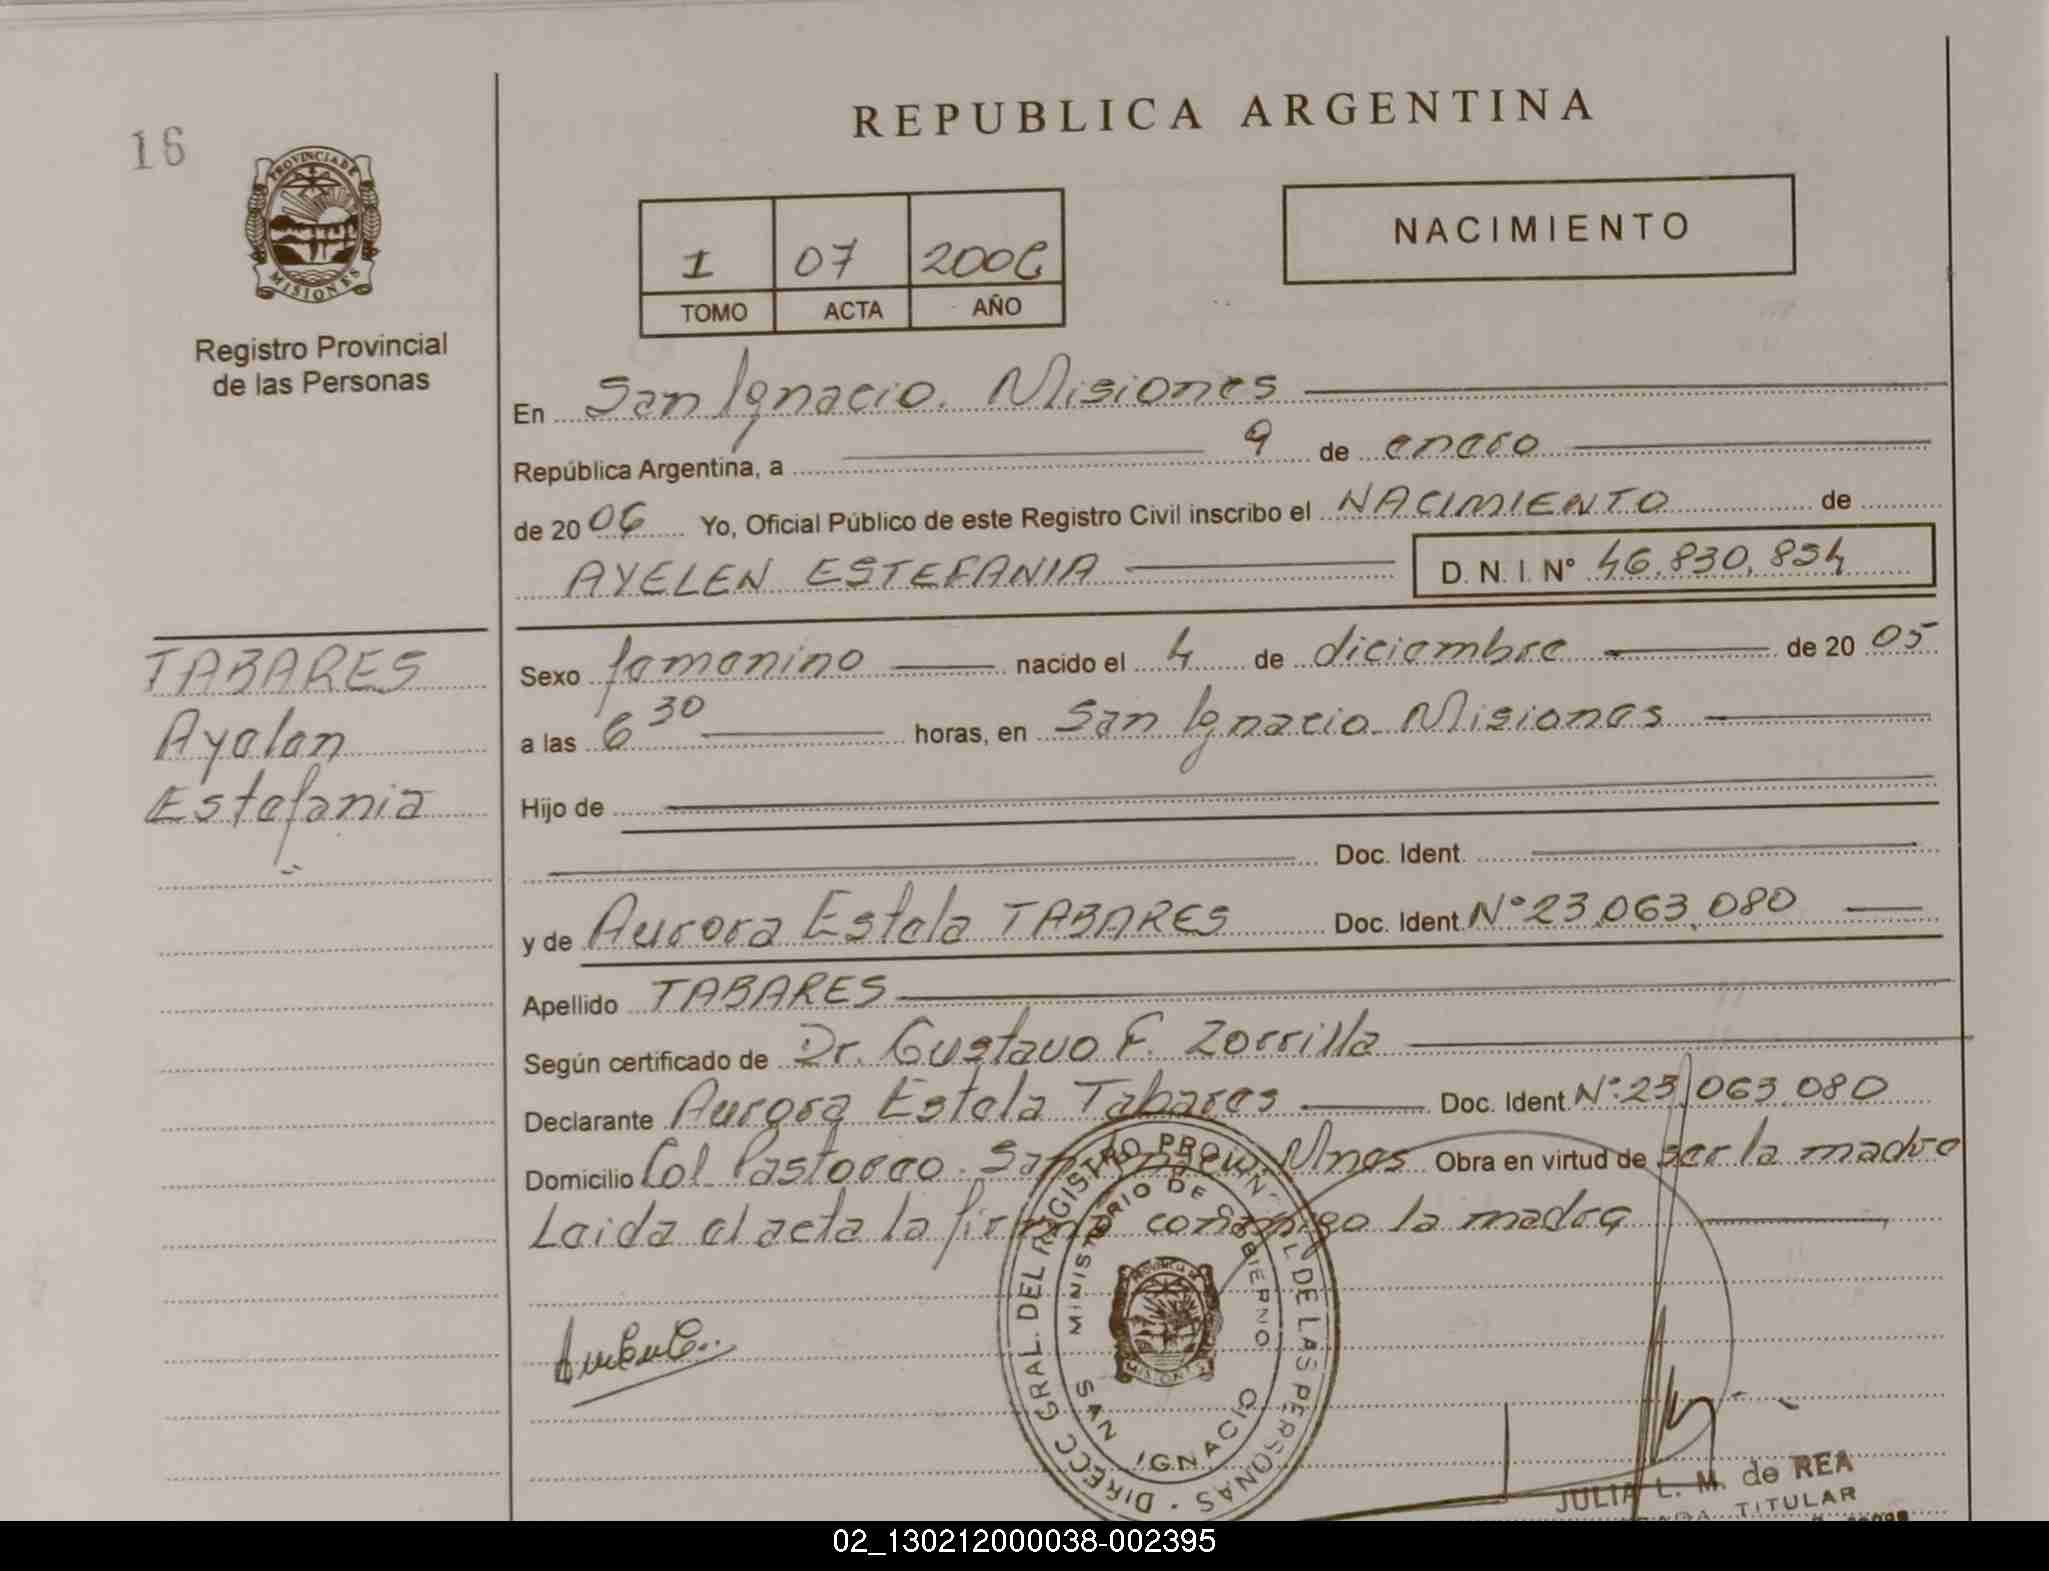 16
REPUBLICA ARGENTINA
PROVINCIA DE
MISIONES
Registro Provincial
de las Personas
1 07 2006
TOMO ACTA AÑO
NACIMIENTO
En San Ignacio. Misiones
República Argentina, a 9 de enero
de 2006 Yo, Oficial Público de este Registro Civil inscribo el NACIMIENTO de
AYELEN ESTEFANIA D. N. I. N° 46.830.854
TABARES
Ayelen
Estefania
Sexo femenino nacido el 4 de diciembre de 2005
a las 6 30 horas, en San Ignacio Misiones
Hijo de
Doc. Ident.
y de Aurora Estela TABARES Doc. Ident. N° 23.063.080
Apellido TABARES
Según certificado de Dr. Gustavo F. Zorrilla
Declarante Aurora Estela Tabares Doc. Ident N° 23.063.080
Domicilio Col Pastoreo. San Ignacio. Mnes Obra en virtud de ser la madre
Leida el acta la firma conmigo la madre
DIRECC GRAL. DEL REGISTRO PROVIN L DE LAS PERSONAS
MINISTERIO DE GOBIERNO
SAN IGNACIO
PROVINCIA DE
MISIONES
JULIA L. M. de REA
TITULAR
02_130212000038-002395